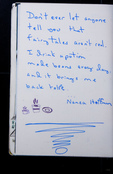 Don't ever let anyone
tell you that
fairytales aren't real.
I drink a potion
made beans every day,
and it brings me
back to life.
Nanea Hoffman